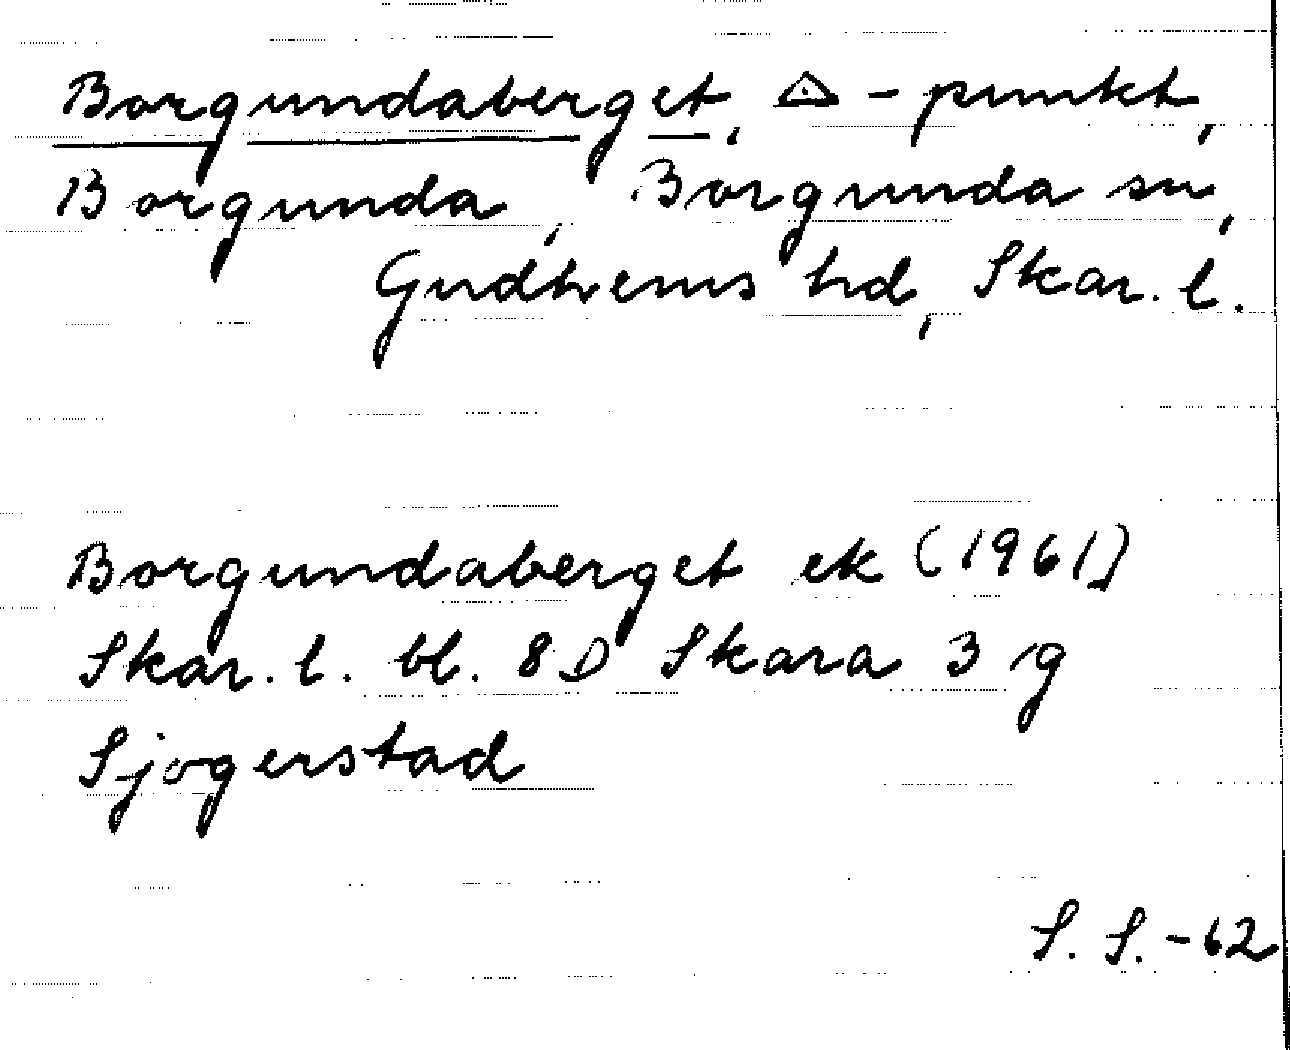 Borgundaberget, △ - punkt,
Borgunda, Borgunda sn,
Gudhems hd, Skar. l.
Borgundaberget ek (1961)
Skar. l. bl. 8D Skara 3 g
Sjogerstad
S. S. -62